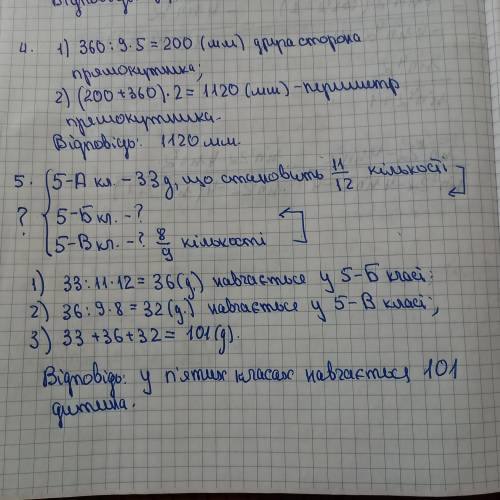 4. 1) 360:9·5=200 (мм) друга сторона
прямокутника;
2) (200+360)·2=1120 (мм)-периметр
прямокутника.
Відповідь: 1120 мм.
5. 5-А кл. - 33 д, що становить 11/12 кількості
? 5-Б кл. - ?
5-В кл. - ? 8/9 кількості
1) 33:11·12=36(д) навчається у 5-Б класі:
2) 36:9·8=32(д.) навчається у 5-В класі;
3) 33+36+32= 101(д).
Відповідь: у п'ятих класах навчається 101
дитина.